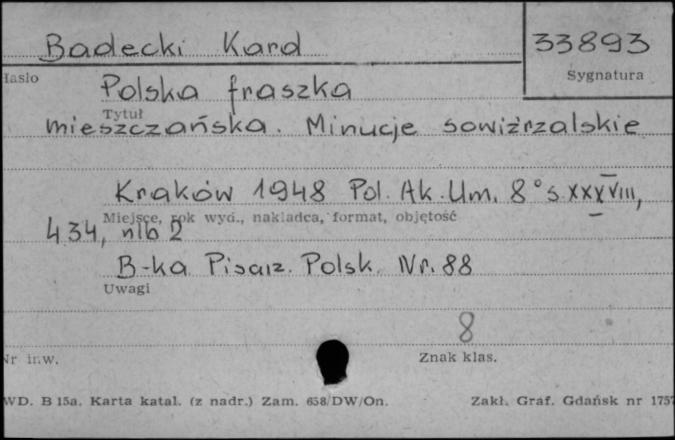 Badecki Karol
33893
Hasło
Sygnatura
Polska fraszka
Tytuł
mieszczańska. Minucje sowiźrzalskie
Kraków 1948 Pol. Ak. Um. 8° s. XXXVIII,
Miejsce, rok wyd., nakładca, format, objętość
434, nlb 2
B-ka Pisarz. Polsk. Nr. 88
Uwagi
8
Nr inw.
Znak klas.
WD. B 15a. Karta katal. (z nadr.) Zam. 658/DW/On.
Zakł. Graf. Gdańsk nr 1757